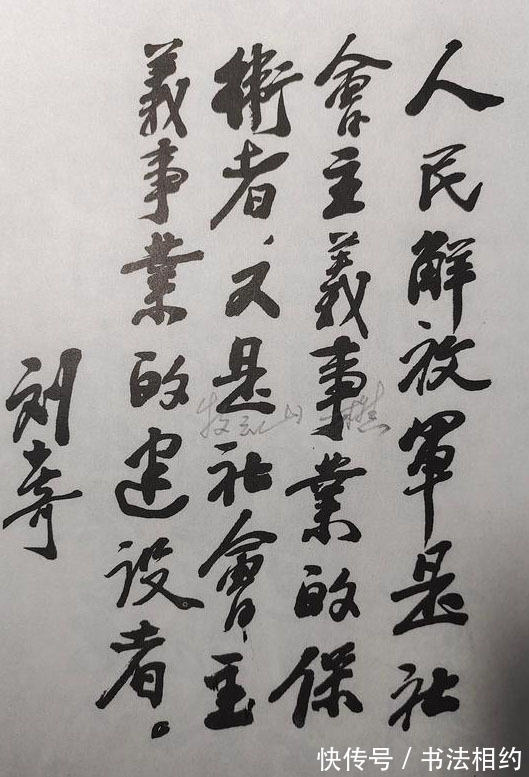 人民解放軍是社
會主義事業的保
衛者，又是社會主
義事業的建設者。
刘少奇
快传号 / 书法相约